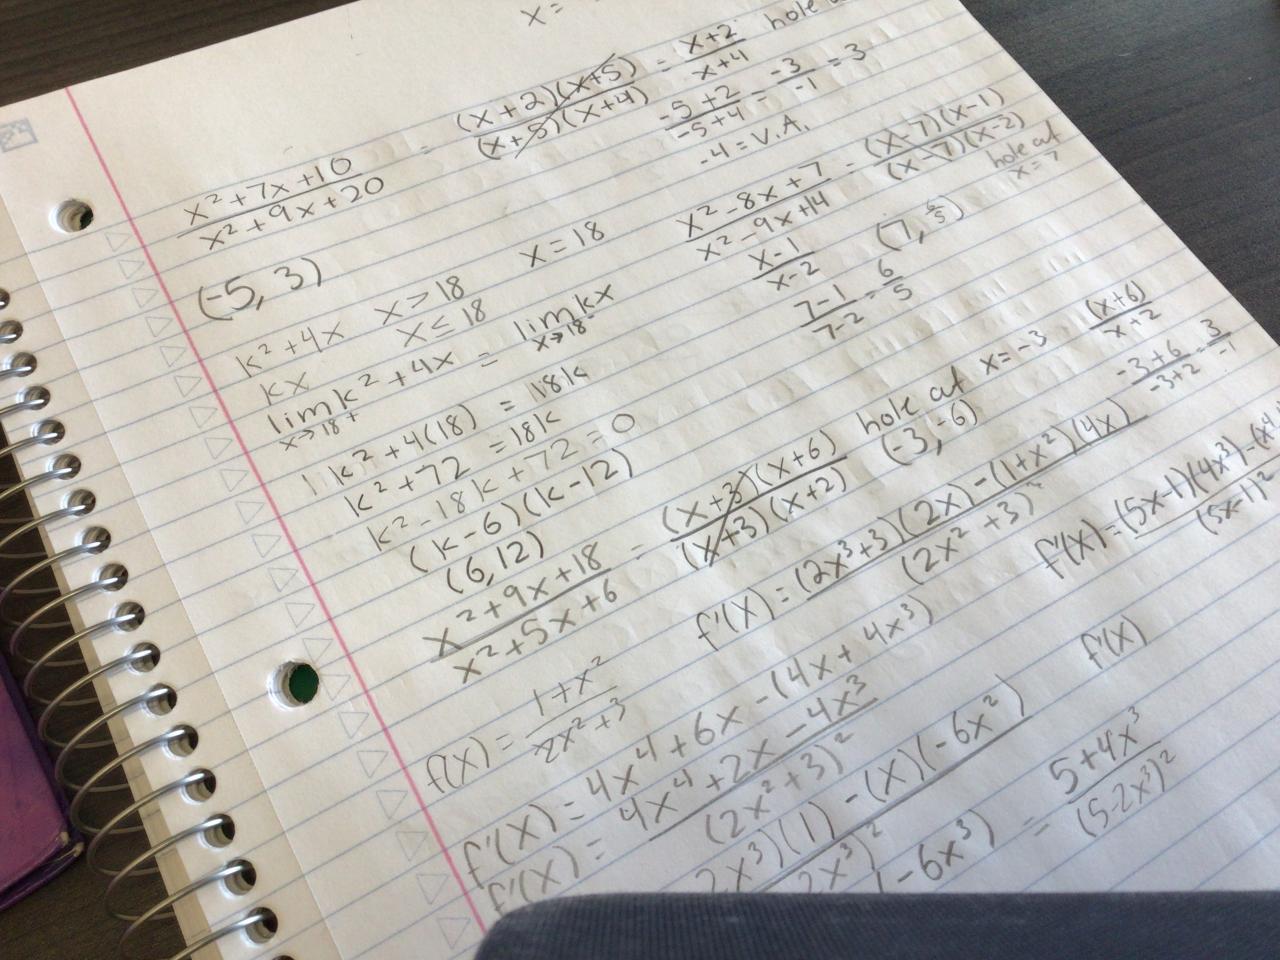 x =
x² + 7x + 10 / x² + 9x + 20 = (x + 2)(x + 5) / (x + 5)(x + 4) = x + 2 / x + 4 hole
-5 + 2 / -5 + 4 = -3 / -1 = 3
-4 = V.A.
(-5, 3)
x² - 8x + 7 / x² - 9x + 14 = (x - 7)(x - 1) / (x - 7)(x - 2) hole at x = 7
x - 1 / x - 2 (7, 6/5)
7 - 1 / 7 - 2 = 6 / 5
k² + 4x x > 18 x = 18
kx x ≤ 18
lim x→18+ k² + 4x = lim x→18- kx
k² + 4(18) = 18k
k² + 72 = 18k
k² - 18k + 72 = 0
(k - 6)(k - 12)
(6, 12)
x² + 9x + 18 / x² + 5x + 6 = (x + 3)(x + 6) / (x + 3)(x + 2) hole at x = -3 (x + 6) / x + 2
(-3, -6) -3 + 6 / -3 + 2 = 3 / -1
f(x) = 1 + x² / 2x² + 3 f'(x) = (2x³ + 3)(2x) - (1 + x²)(4x) / (2x² + 3)²
f'(x) = 4x⁴ + 6x - (4x + 4x³)
f'(x) = 4x⁴ + 2x - 4x³ / (2x² + 3)²
f'(x) = (5x - 1)(4x³) - (x⁴ / (5x - 1)²
f'(x)
2x³)(1) - (x)(-6x²) / 2x³)²
(-6x³) = 5 + 4x³ / (5 - 2x³)²